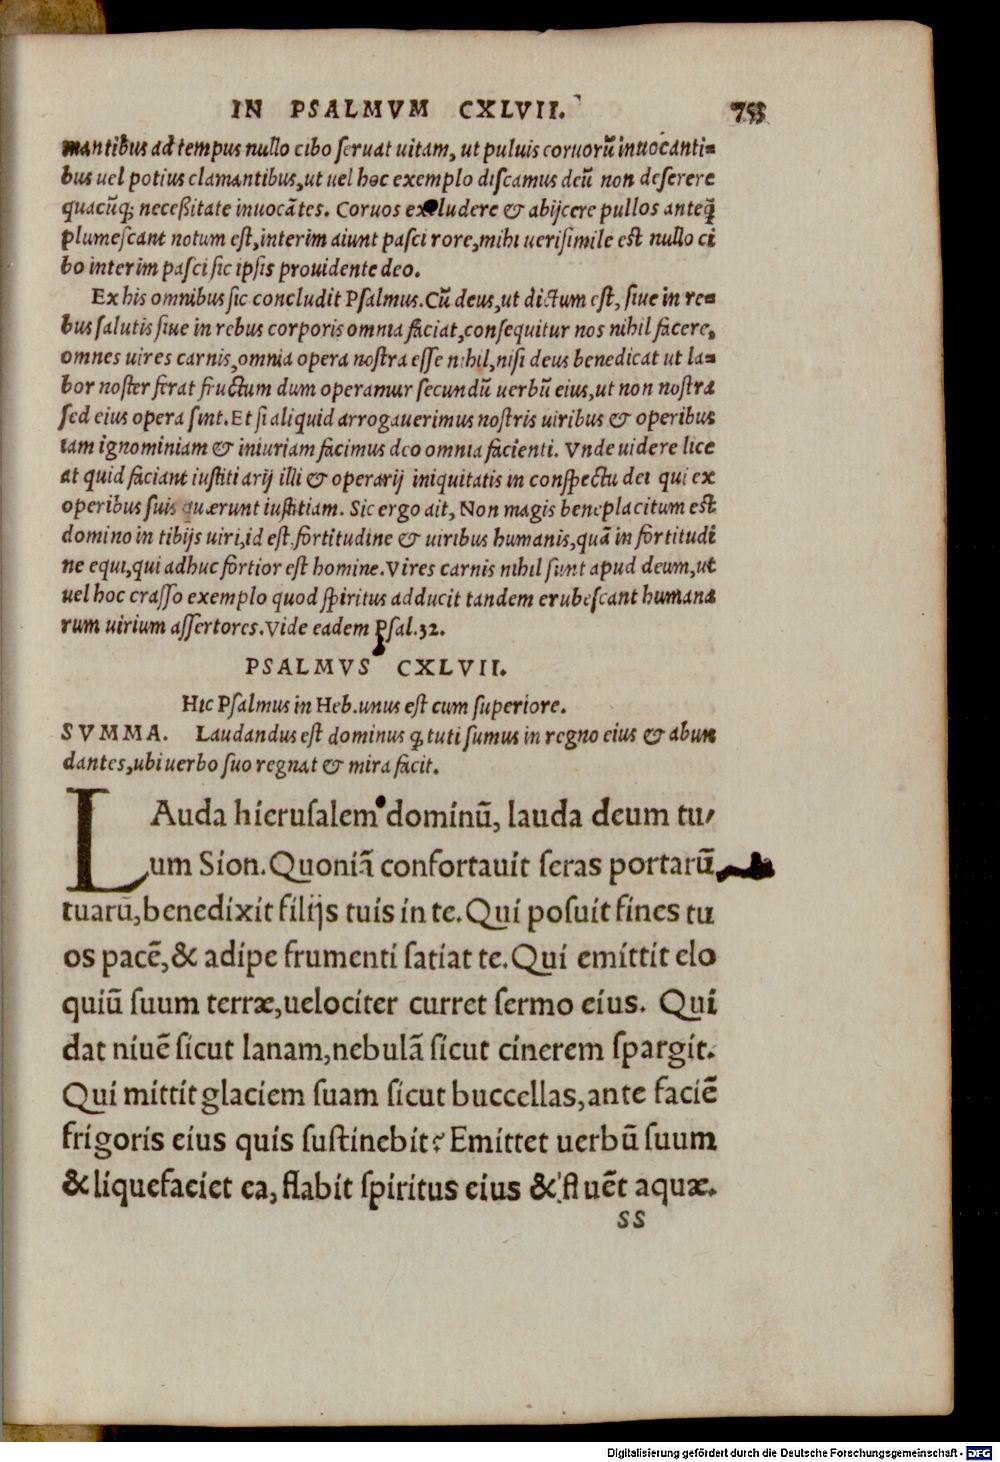 IN PSALMVM CXLVII. 753
mantibus ad tempus nullo cibo seruat uitam, ut puluis coruorũ inuocanti-
bus uel potius clamantibus, ut uel hoc exemplo discamus deũ non deserere
quacũq; neceßitate inuocãtes. Coruos excludere & abijcere pullos anteq̃
plumescant notum est, interim aiunt pasci rore, mihi uerisimile est nullo ci
bo interim pasci sic ipsis prouidente deo.
Ex his omnibus sic concludit Psalmus. Cũ deus, ut dictum est, siue in re-
bus salutis siue in rebus corporis omnia faciat, consequitur nos nihil facere,
omnes uires carnis, omnia opera nostra esse nihil, nisi deus benedicat ut la-
bor noster ferat fructum dum operamur secundũ uerbũ eius, ut non nostra
sed eius opera sint. Et si aliquid arrogauerimus nostris uiribus & operibus
iam ignominiam & iniuriam facimus deo omnia facienti. Vnde uidere lice
at quid faciant iustitiarij illi & operarij iniquitatis in conspectu dei qui ex
operibus suis quærunt iustitiam. Sic ergo ait, Non magis beneplacitum est
domino in tibijs uiri, id est, fortitudine & uiribus humanis, quã in fortitudi
ne equi, qui adhuc fortior est homine. Vires carnis nihil sunt apud deum, ut
uel hoc crasso exemplo quod spiritus adducit tandem erubescant humana
rum uirium assertores. Vide eadem Psal.32.
PSALMVS CXLVII.
Hic Psalmus in Heb. unus est cum superiore.
SVMMA. Laudandus est dominus q̃ tuti sumus in regno eius & abun
dantes, ubi uerbo suo regnat & mira facit.
LAuda hierusalem dominũ, lauda deum tu-
um Sion. Quoniã confortauit seras portarũ
tuarũ, benedixit filijs tuis in te. Qui posuit fines tu
os pacẽ, & adipe frumenti satiat te. Qui emittit elo
quiũ suum terræ, uelociter curret sermo eius. Qui
dat niuẽ sicut lanam, nebulã sicut cinerem spargit.
Qui mittit glaciem suam sicut buccellas, ante faciẽ
frigoris eius quis sustinebit? Emittet uerbũ suum
& liquefaciet ea, flabit spiritus eius & fluẽt aquæ.
SS
Digitalisierung gefördert durch die Deutsche Forschungsgemeinschaft - DFG